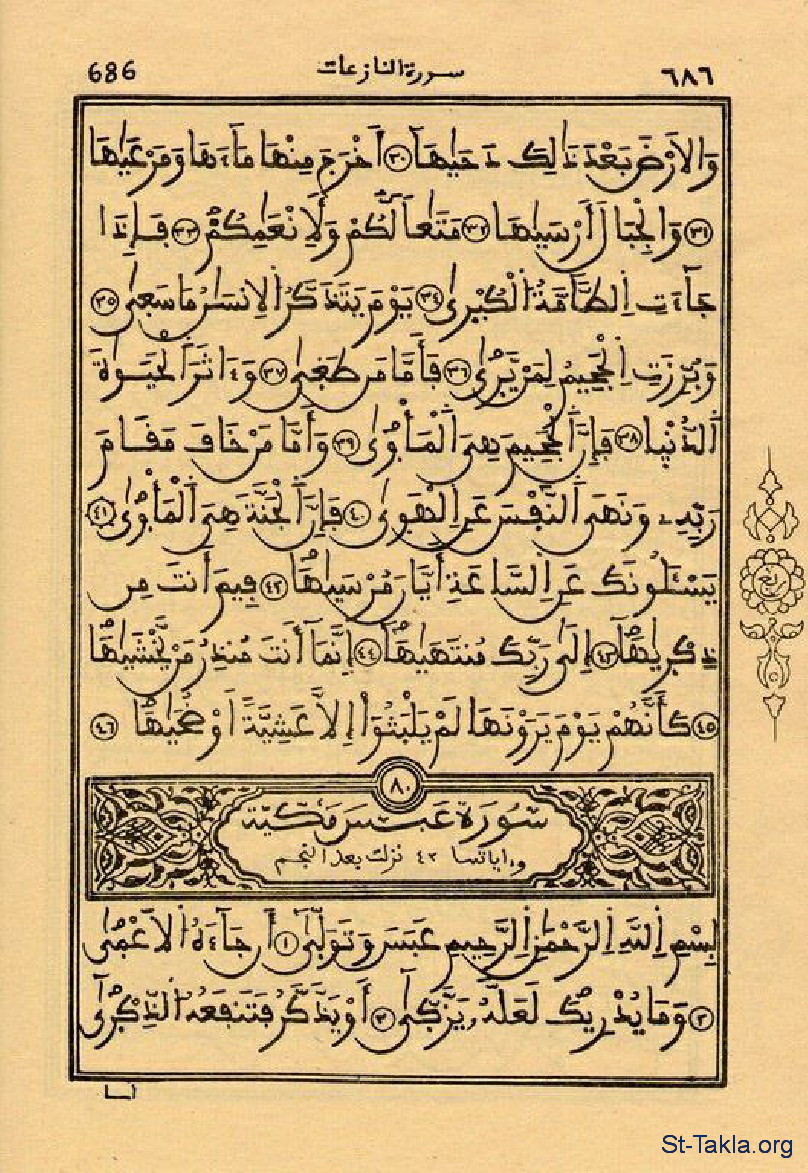 686 سورة النازعات ٦٨٦
وَالَارْضَ بَعْدَ ذَٰلِكَ دَحَيٰهَآ ٣٠ أَخْرَجَ مِنْهَا مَآءَهَا وَمَرْعَيٰهَا
٣١ وَالْجِبَالَ أَرْسَيٰهَا ٣٢ مَتَٰعاً لَّكُمْ وَلَأِنْعَٰمِكُمْ ٣٣ فَإِذَا
جَآءَتِ اِ۬لطَّآمَّةُ اُ۬لْكُبْرَىٰ ٣٤ يَوْمَ يَتَذَكَّرُ اُ۬لِانسَٰنُ مَا سَعَىٰ ٣٥
وَبُرِّزَتِ اِ۬لْجَحِيمُ لِمَنْ يَّرَىٰ ٣٦ فَأَمَّا مَن طَغَىٰ ٣٧ وَءَاثَرَ اَ۬لْحَيَوٰةَ
اَ۬لدُّنْيَا ٣٨ فَإِنَّ اَ۬لْجَحِيمَ هِيَ اَ۬لْمَأْوَىٰ ٣٩ وَأَمَّا مَنْ خَافَ مَقَامَ
رَبِّهِۦ وَنَهَى اَ۬لنَّفْسَ عَنِ اِ۬لْهَوَىٰ ٤٠ فَإِنَّ اَ۬لْجَنَّةَ هِيَ اَ۬لْمَأْوَىٰ ٤١
يَسْـَٔلُونَكَ عَنِ اِ۬لسَّاعَةِ أَيَّانَ مُرْسَيٰهَا ٤٢ فِيمَ أَنتَ مِن
ذِكْرَيٰهَا ٤٣ إِلَىٰ رَبِّكَ مُنتَهَيٰهَا ٤٤ إِنَّمَا أَنتَ مُنذِرُ مَنْ يَّخْشَيٰهَا
٤٥ كَأَنَّهُمْ يَوْمَ يَرَوْنَهَا لَمْ يَلْبَثُوٓاْ إِلَّا عَشِيَّةً اَوْ ضُحَيٰهَا ٤٦
٨٠
سُورَة عَبَسَ مَكِّيَّة
وءاياتها ٤٢ نزلت بعد النجم
بِسْمِ اِ۬للَّهِ اِ۬لرَّحْمَٰنِ اِ۬لرَّحِيمِ عَبَسَ وَتَوَلَّىٰٓ ١ أَن جَآءَهُ اُ۬لَاعْمَىٰ
٢ وَمَا يُدْرِيكَ لَعَلَّهُۥ يَزَّكَّىٰٓ ٣ أَوْ يَذَّكَّرُ فَتَنفَعُهُ اُ۬لذِّكْرَىٰٓ
St-Takla.org